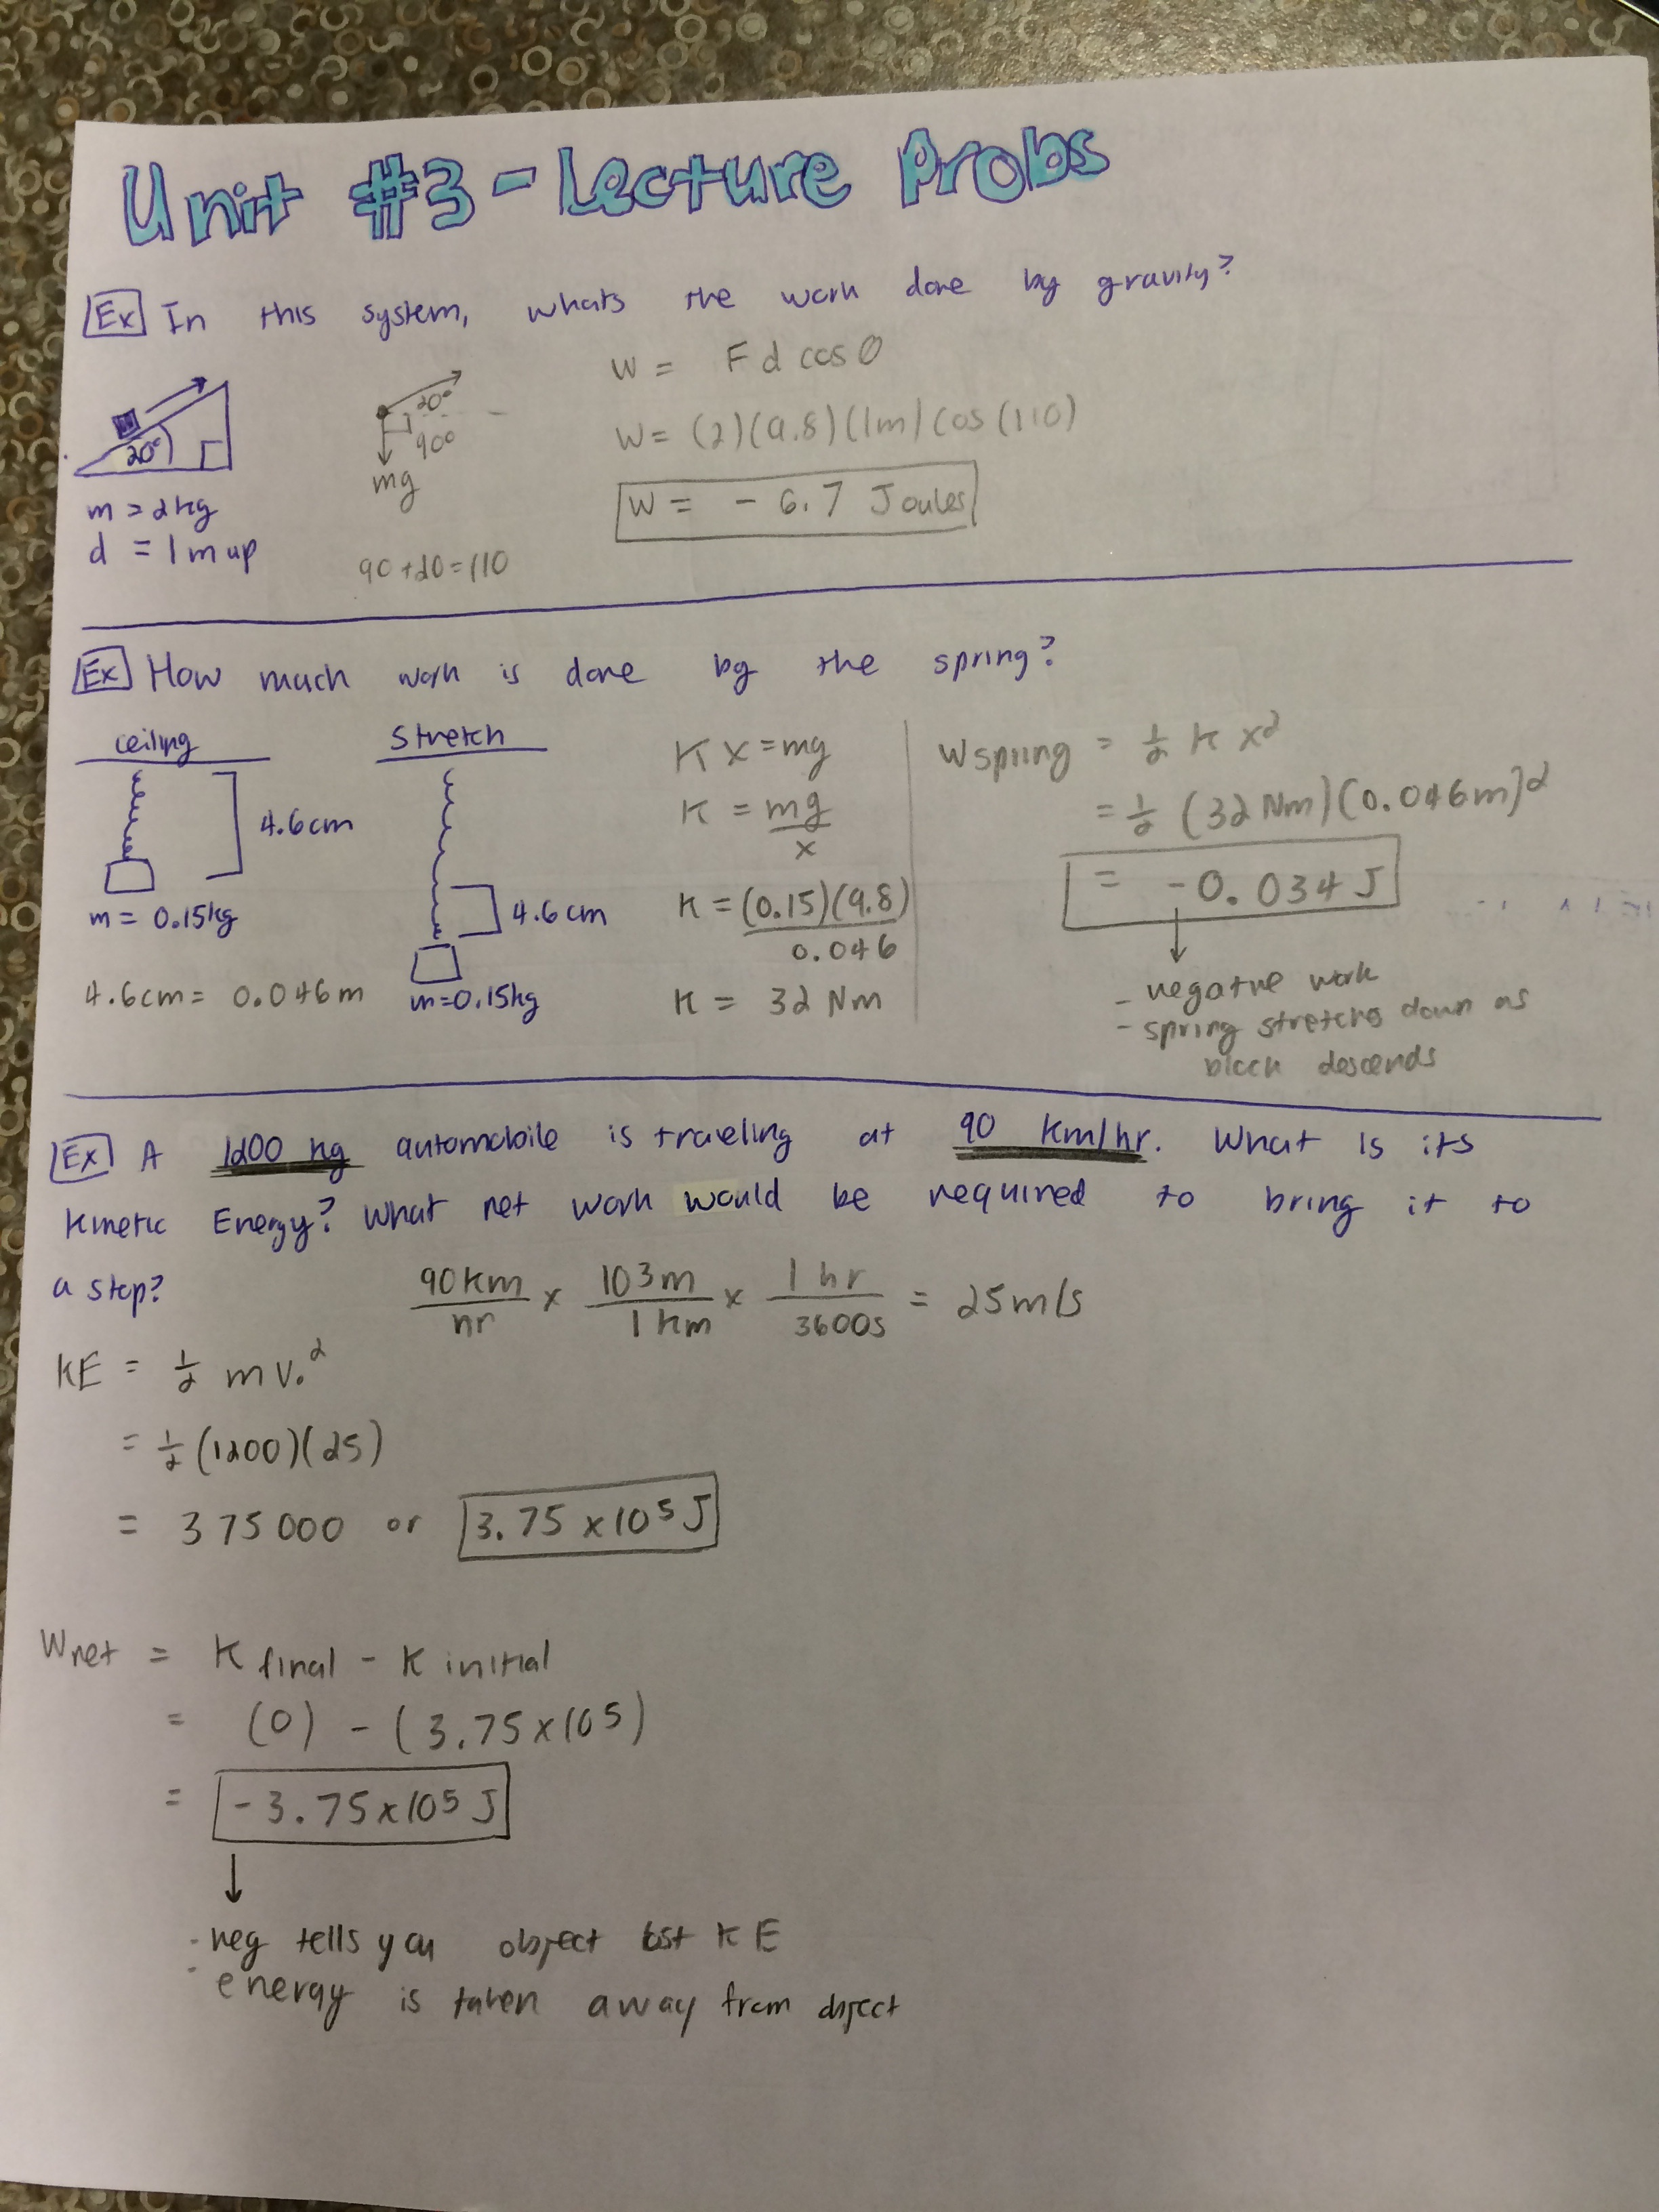 Unit #3 - Lecture Probs
Ex In this system, whats the work done by gravity?
20°
m = 2kg
d = 1m up
20°
90°
mg
90+20=110
W = Fd cosθ
W = (2)(9.8)(1m) cos(110)
W = -6.7 Joules
Ex How much work is done by the spring?
ceiling
4.6cm
m = 0.15kg
4.6cm = 0.046m
stretch
4.6cm
m=0.15kg
Kx = mg
K = mg
x
K = (0.15)(9.8)
0.046
K = 32 Nm
Wspring = 1/2 K x²
= 1/2 (32 Nm)(0.046m)²
= -0.034 J
- negative work
- spring stretches down as
block descends
Ex A 1200 kg automobile is traveling at 90 km/hr. What is its
Kinetic Energy? What net work would be required to bring it to
a stop?
90km/hr x 103m/1km x 1hr/3600s = 25m/s
KE = 1/2 mv.²
= 1/2 (1200)(25)
= 375000 or 3.75 x 10⁵ J
Wnet = K final - K initial
= (0) - (3.75x10⁵)
= -3.75x10⁵ J
- neg tells you object lost KE
- energy is taken away from object